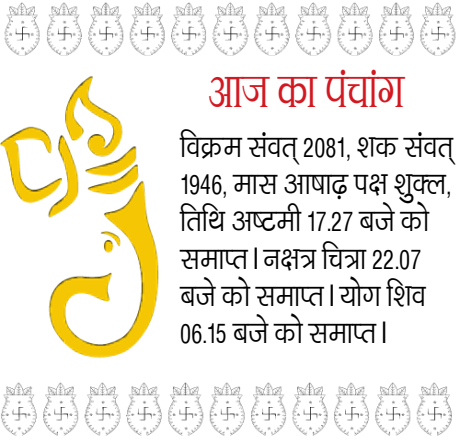 आज का पंचांग
विक्रम संवत् 2081, शक संवत्
1946, मास आषाढ़ पक्ष शुक्ल,
तिथि अष्टमी 17.27 बजे को
समाप्त। नक्षत्र चित्रा 22.07
बजे को समाप्त। योग शिव
06.15 बजे को समाप्त।